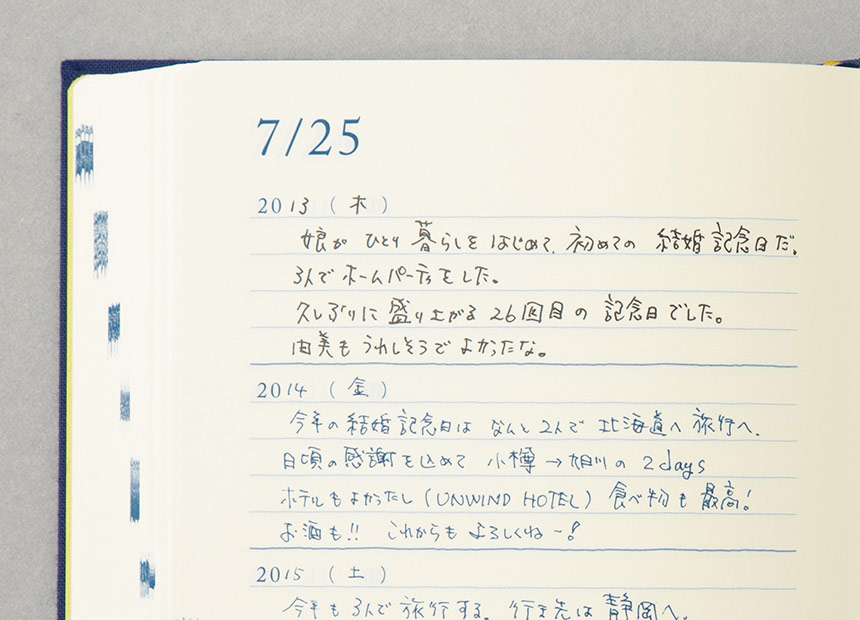 7/25
2013 (木)
娘が ひとり暮らしをはじめて、初めての 結婚記念日だ。
3人でホームパーティをした。
久しぶりに盛り上がる 26回目の 記念日でした。
由美もうれしそうでよかったな。
2014 (金)
今年の結婚記念日は なんと2人で 北海道へ旅行へ.
日頃の感謝を込めて 小樽→旭川の 2days
ホテルもよかったし (UNWIND HOTEL) 食べ物も最高!
お酒も!! これからも よろしくねー!
2015 (土)
今年も 3人で 旅行する。行き先は 静岡へ。